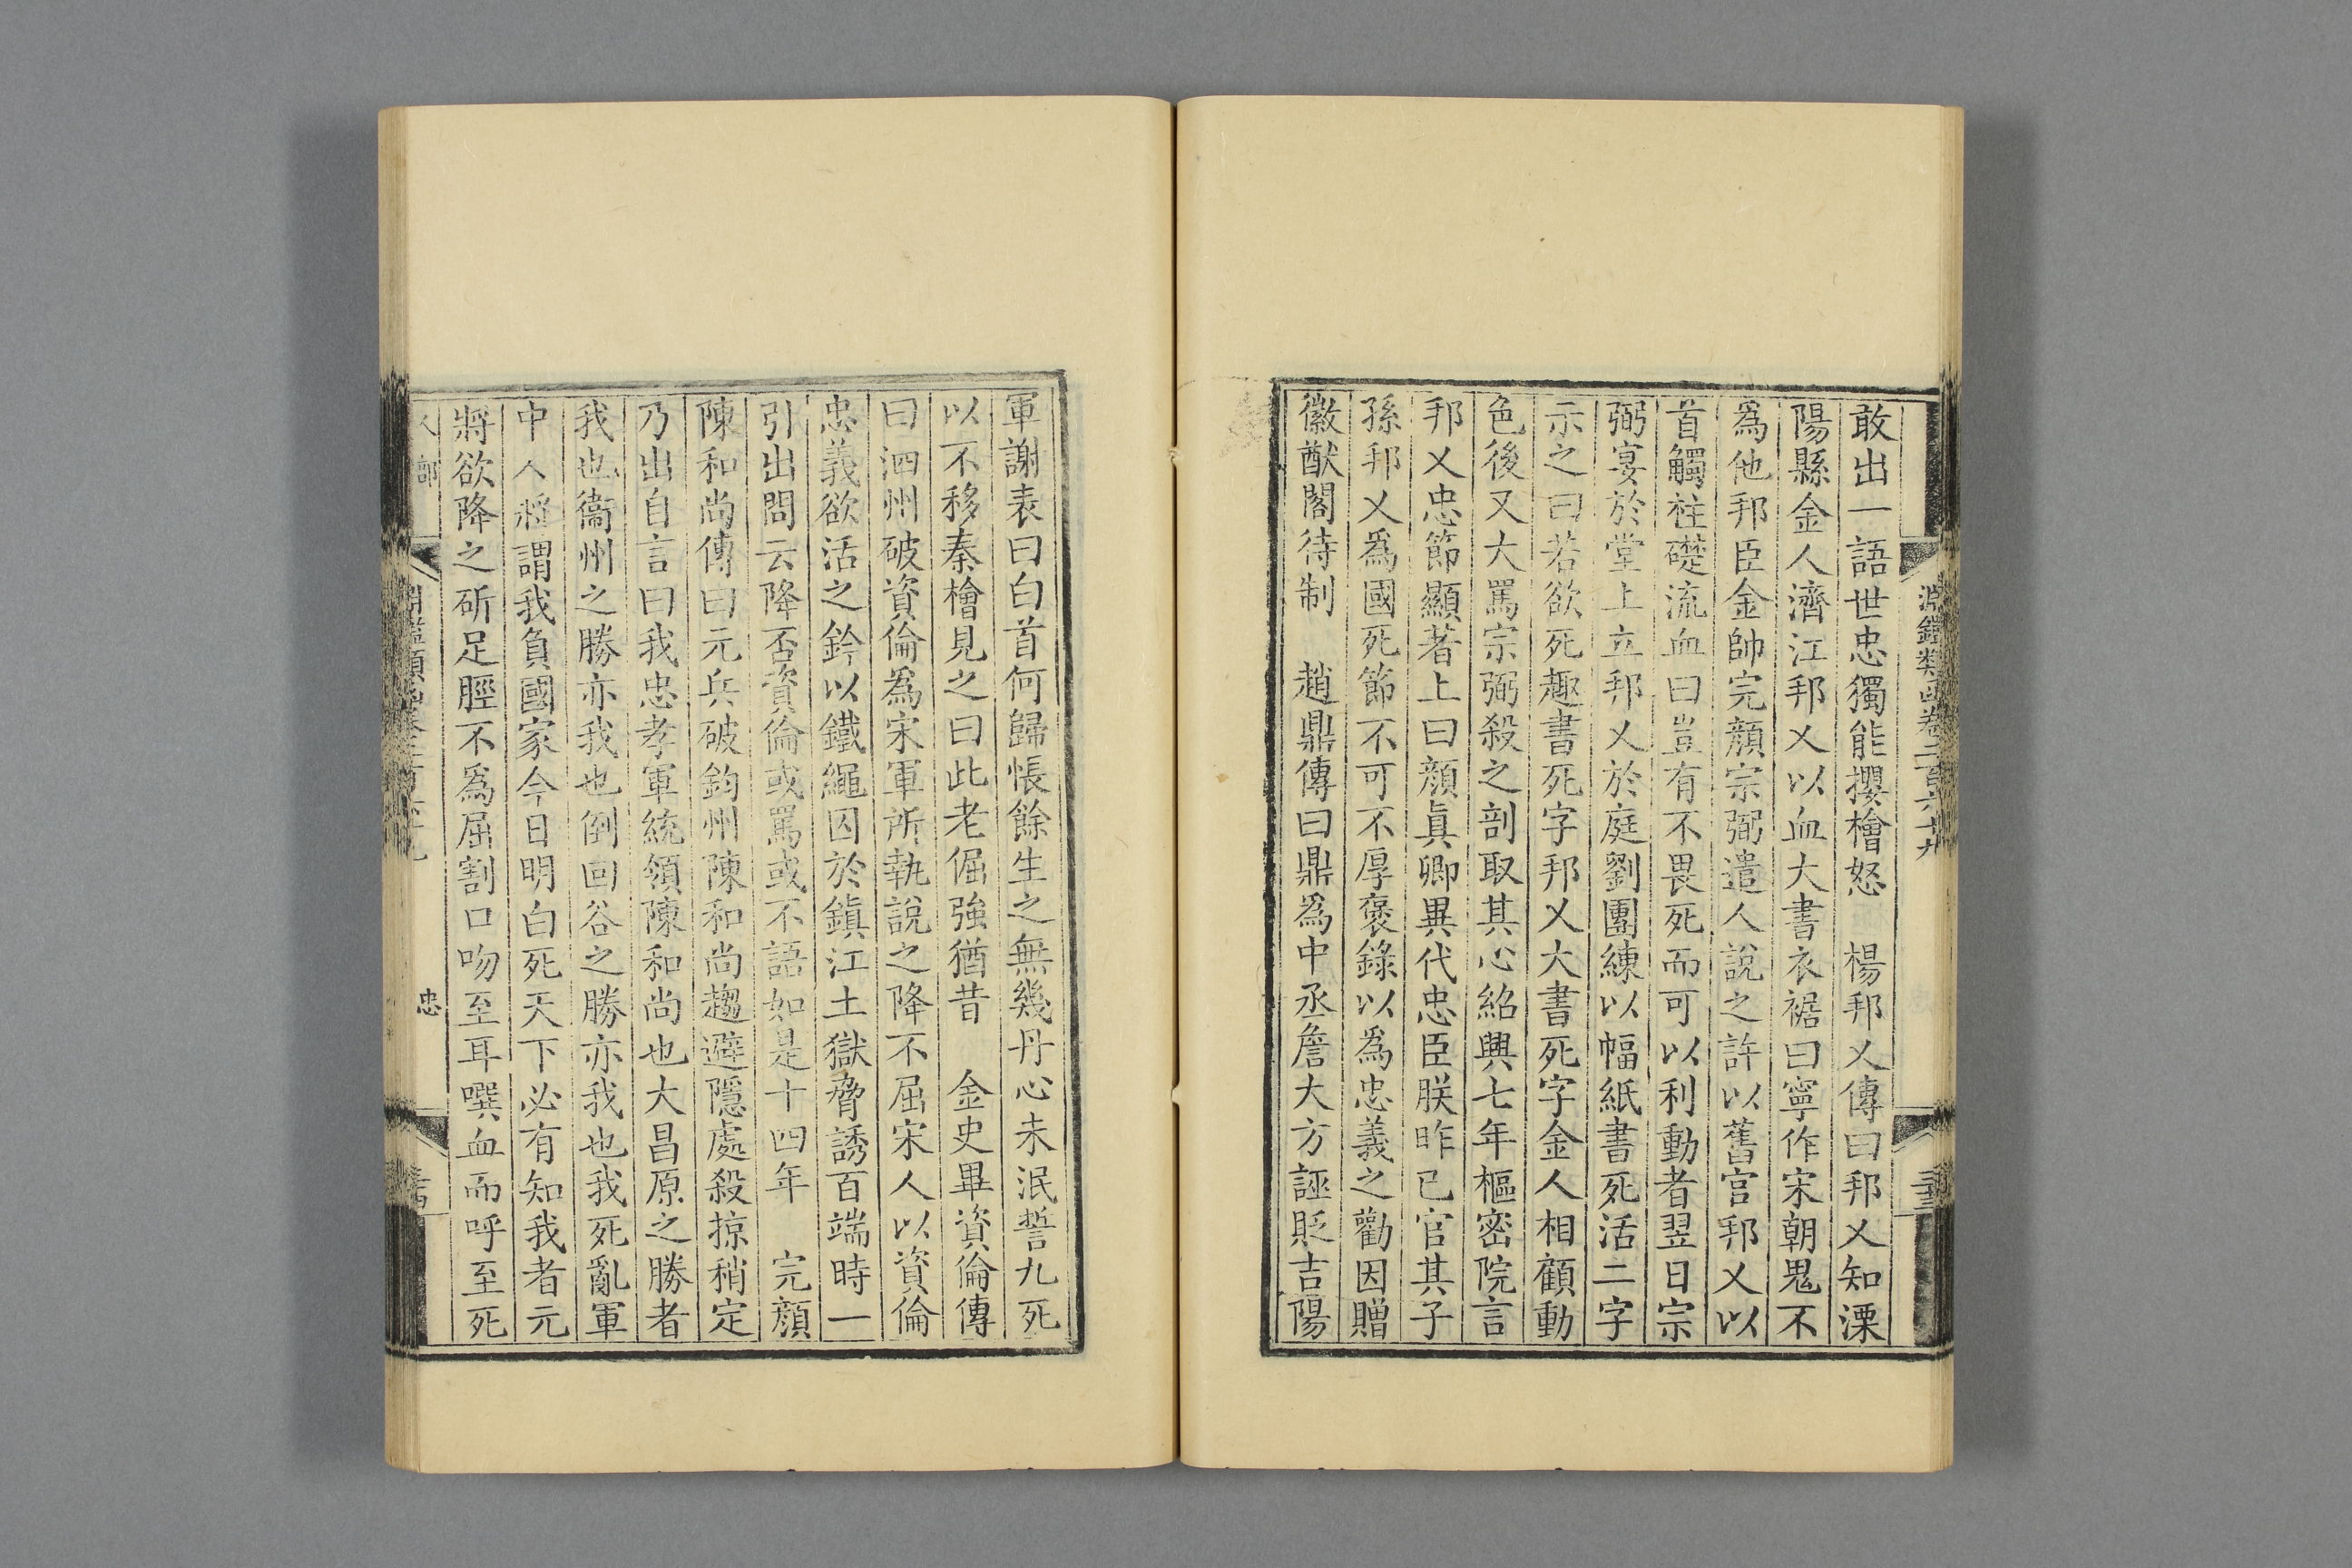 敢出一語世忠獨能攖檜怒　楊邦乂傳曰邦乂知溧
陽縣金人濟江邦乂以血大書衣裾曰寧作宋朝鬼不
爲他邦臣金帥完顏宗弼遣人說之許以舊官邦乂以
首觸柱礎流血曰豈有不畏死而可以利動者翌日宗
弼宴於堂上立邦乂於庭劉團練以幅紙書死活二字
示之曰若欲死趣書死字邦乂大書死字金人相顧動
色後又大罵宗弼殺之剖取其心紹興七年樞密院言
邦乂忠節顯著上曰顏眞卿異代忠臣朕昨已官其子
孫邦乂爲國死節不可不厚褒錄以爲忠義之勸因贈
徽猷閣待制　趙鼎傳曰鼎爲中丞詹大方誣貶吉陽
軍謝表曰白首何歸悵餘生之無幾丹心未泯誓九死
以不移秦檜見之曰此老倔強猶昔　金史畢資倫傳
曰泗州破資倫爲宋軍所執說之降不屈宋人以資倫
忠義欲活之鈐以鐵繩囚於鎭江土獄脅誘百端時一
引出問云降否資倫或罵或不語如是十四年　完顏
陳和尚傳曰元兵破鈞州陳和尚趨避隱處殺掠稍定
乃出自言曰我忠孝軍統領陳和尚也大昌原之勝者
我也衞州之勝亦我也倒回谷之勝亦我也我死亂軍
中人將謂我負國家今日明白死天下必有知我者元
將欲降之斫足脛不爲屈割口吻至耳噀血而呼至死
忠